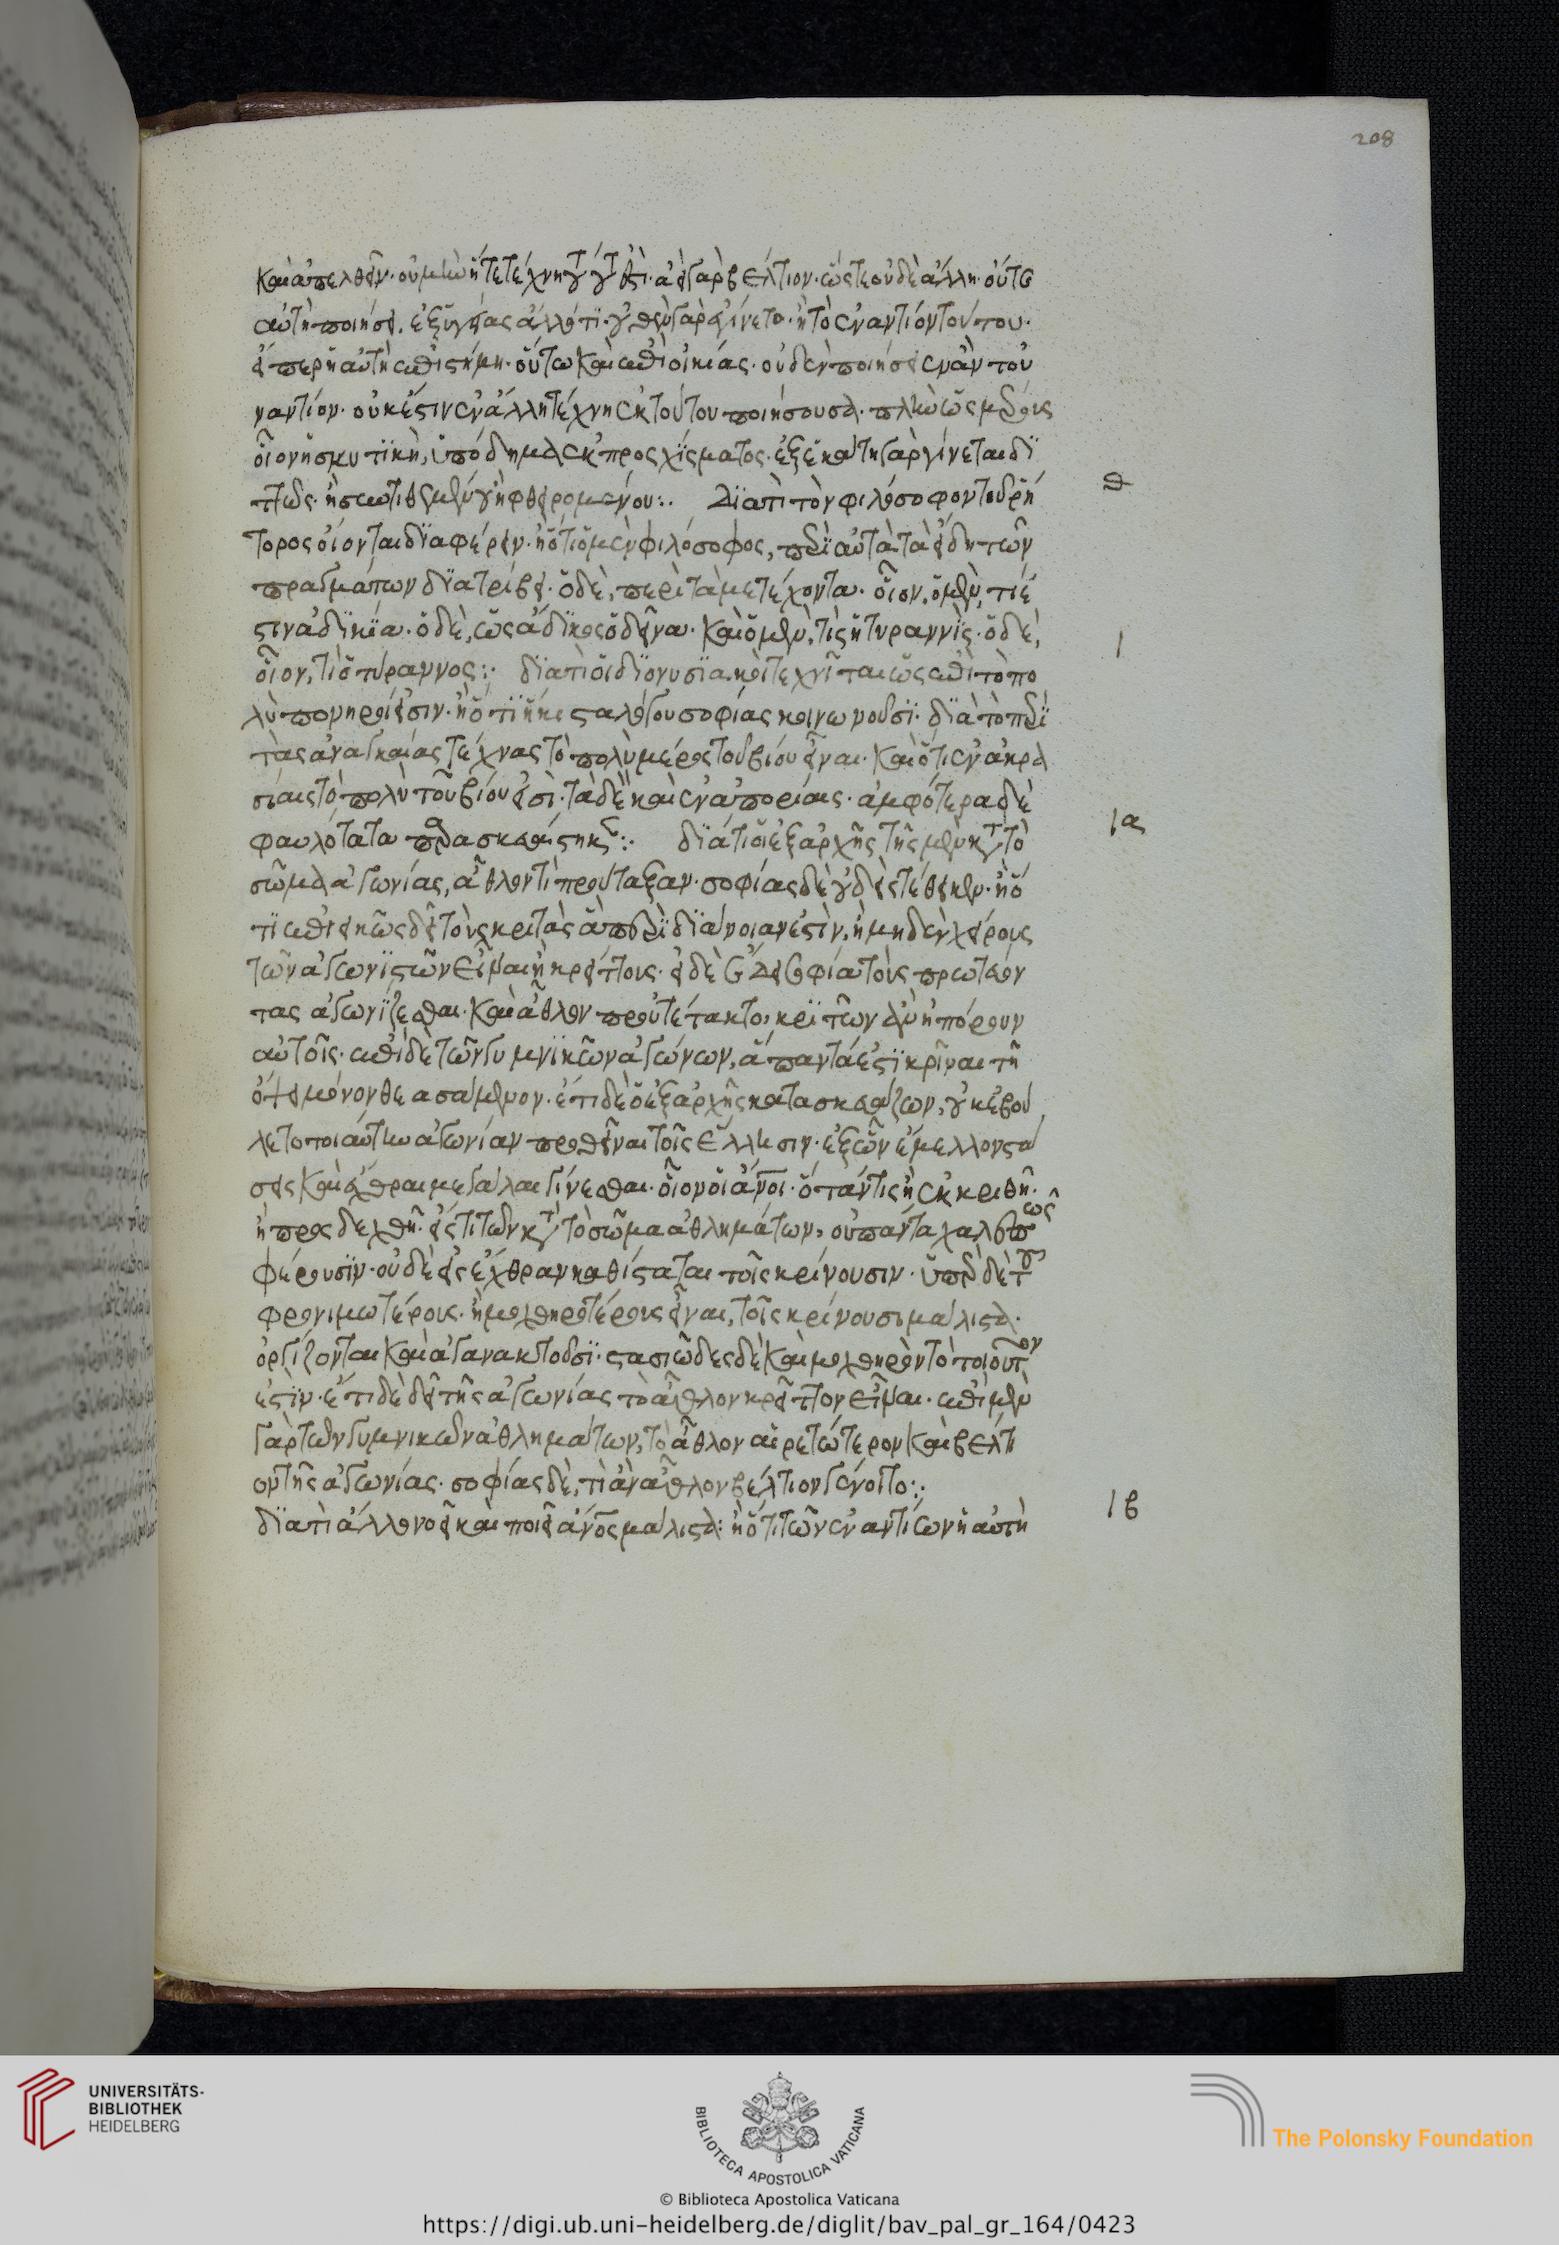 208
καὶ ἀπελθεῖν· οὐ μὴν ἥ τε τέχνη τοῦτό ἐστι· ἀεὶ γὰρ βέλτιον· ὥστε οὐδὲ ἄλλη· οὔτε
αὐτὴ ποιήσει, ἐξ ὑγιείας ἄλλό τι· οὐθὲν γὰρ ἐγίνετο· ἢ τὸ ἐναντίον τούτου·
εἴπερ ἡ αὐτὴ ἐπιστήμη· οὕτω καὶ ἐπὶ οἰκίας· οὐδὲν ποιήσειεν ἂν τοὐ
ναντίον· οὐκ ἔστιν ἐν ἄλλη τέχνη ἐκ τούτου ποιήσουσα· πλὴν ὡς μέρους
οἷον ἡ σκυτικὴ, ὑπόδημα ἐκ προσχίσματος· ἐξ ἑκάτη γὰρ γίνεται δι
ττῶς· ἢ συντιθεμένου ἢ φθειρομένου:· Διατὶ τὸν φιλόσοφον τοῦ ῥή θ
τορος οἴονται διαφέρειν· ἢ ὅτι ὁ μὲν φιλόσοφος, περὶ αὐτὰ τὰ εἴδη τῶν
πραγμάτων διατρίβει· ὁ δὲ, περὶ τὰ μετέχοντα· οἷον, ὁ μὲν, τί ἐ
στιν ἀδικία· ὁ δὲ, ὡς ἄδικος ὁ δεῖνα· καὶ ὁ μὲν, τίς ἡ τυραννίς· ὁ δὲ, ι
οἷον, τί ὁ τύραννος:· διατὶ οἱ διονυσιακοὶ τεχνῖται ὡς ἐπὶ τὸ πο
λὺ πονηροί εἰσιν· ἢ ὅτι ἥκιστα λόγου σοφίας κοινωνοῦσι· διὰ τὸ περὶ
τὰς ἀναγκαίας τέχνας τὸ πολὺ μέρος τοῦ βίου εἶναι· καὶ ὅτι ἐν ἀκρα
σίαις τὸ πολὺ τοῦ βίου εἰσὶ· τὰ δὲ καὶ ἐν ἀπορίαις· ἀμφότερα δὲ
φαυλότατα παρασκευαστηκά:· διατὶ οἱ ἐξαρχῆς τῆς μὲν κατὰ τὸ ια
σῶμα ἀγωνίας, ἆθλόν τι προύταξαν· σοφίας δὲ οὐδὲν ἐτέθηκεν· ἢ ὅ
τι ἐπιεικῶς δεῖ τοὺς κριτὰς ἃ περὶ διάνοιαν ἐστὶν, ἢ μηδὲν χείρους
τῶν ἀγωνιστῶν εἶναι ἢ κρείττους· εἰ δὲ ἔδει σοφία τοὺς πρωτεύον
τας ἀγωνίζεσθαι· καὶ ἆθλον προὐτέτακτο, κριτῶν ἂν ἠπόρουν
αὐτοῖς· ἐπὶ δὲ τῶν γυμνικῶν ἀγώνων, ἅπαντά ἐστι κρῖναι τῇ
ὄψει μόνον θεασάμενον· ἔτι δὲ ὁ ἐξαρχῆς κατασκευάζων, οὐκ ἐβού
λετο τοιαύτην ἀγωνίαν προθεῖναι τοῖς ἕλλησιν· ἐξ ὧν ἔμελλον στά
σεις καὶ ἔχθραι μεγάλαι γίνεσθαι· οἷον οἱ ἄνοι· ὅταν τις ἢ ἐκκριθῇ·
ἢ προσδεχθῇ· εἴς τι τῶν κατὰ τὸ σῶμα ἀθλημάτων, οὐ πάντα χαλεπῶς
φέρουσιν· οὐδὲ εἰς ἔχθραν καθίσταται τοῖς κρίνουσιν· ὑπὲρ δὲ τοῦ
φρονιμωτέρους· ἢ μοχθηροτέρους εἶναι, τοῖς κρίνουσι μάλιστα·
ὀργίζονται καὶ ἀγανακτοῦσι· στασιῶδες δὲ καὶ μοχθηρὸν τὸ τοιοῦτον
ἐστὶν· ἔτι δὲ δεῖ τῆς ἀγωνίας τὸ ἆθλον κρεῖττον εἶναι· ἐπὶ μὲν
γὰρ τῶν γυμνικῶν ἀθλημάτων, τὸ ἆθλον αἱρετώτερον καὶ βέλτι
ον τῆς ἀγωνίας· σοφίας δὲ, τί ἂν ἆθλον βέλτιον γένοιτο:·
διατὶ ἄλλο νοεῖ καὶ ποιεῖ ἄνος μάλιστα: ἢ ὅτι τῶν ἐναντίων ἡ αὐτὴ ιβ
UNIVERSITÄTS-
BIBLIOTHEK
HEIDELBERG
BIBLIOTECA APOSTOLICA VATICANA
The Polonsky Foundation
© Biblioteca Apostolica Vaticana
https://digi.ub.uni-heidelberg.de/diglit/bav_pal_gr_164/0423